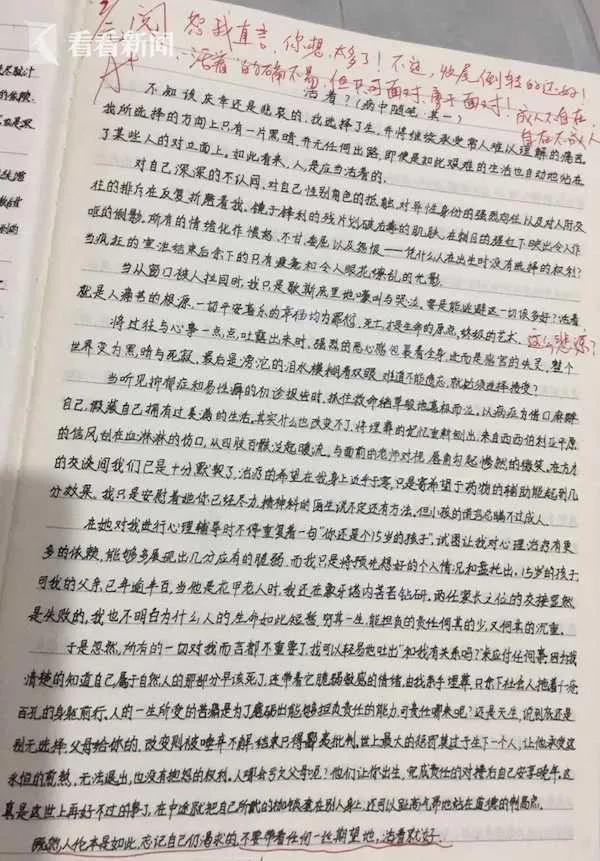 看看新闻
阅
A+
恕我直言，你想太多了！不过，收尾倒转的还好！
“活着”的确不易，但只可面对，勇于面对！成人不自在，
自在不成人
活着？（病中随笔 其一）
不知该庆幸还是悲哀的，我选择了生，并将继续承受常人难以理解的痛苦
我所选择的方向上只有一片黑暗，并无任何出路，即便是如此艰难的生活也自动地站在
了某些人的对立面上，如此看来，人是应当活着的。
对自己深深的不认同，对自己性别角色的抵触，对异性身份的强烈向往以及对人际交
往的排斥在反复折磨着我，镜子锋利的残片划破冶毒的肌肤，在朝日的猩红下映出令人作
呕的倒影，所有的情绪化作愤怒、不甘、委屈以及怨恨——凭什么人在出生时没有选择的权利？
当疯狂的重洗结束后余下的只有疲惫和令人眼花缭乱的光影
当从窗口被人拉回时，我只是歇斯底里地嚎叫与哭泣，要是能逃避这一切该多好？活着
就是人痛苦的根源，一切平安喜乐的享福均为罪恶，死亡才是生命的原点，终极的艺术。
这么悲凉？
将过往与心事一点点吐露出来时，强烈的恶心感包裹着全身，进而是感官的失灵，整个
世界变为黑暗与死寂，最后是滂沱的泪水模糊着双眼，难道不能遗忘，就必须选择接受？
当听见抑郁症和易性癖的初诊报告时，抓住救命绝草般地喜极而泣，以病症为借口麻醉
自己，假装自己拥有过美满的生活，其实什么也改变不了，将埋葬的记忆重新刨出，来自西西伯利亚平原
的信风刮在血淋淋的伤口，从四肢百骸泛起暖流，与面前的老师对视，唇角勾起惨然的微笑，在方才
的交谈间我们已是十分默契了，治疗的希望在我身上近乎于零，只是寄希望于药物的辅助能起到几
分效果，我只是安慰着她你已经尽力，精神科的医生说不定还有方法，但小孩的谎言总瞒不过成人
在她对我进行心理辅导时不得重复着一句“你还是个15岁的孩子”，试图让我对心理治疗有更
多的依赖，能够多展现出几分应有的脆弱，而我只是将预先想好的个人情况和盘托出，15岁的孩子
可我的父亲已年逾半百，当他是花甲老人时，我还在象牙塔内苦苦钻研，两任家长之位的交接显然
是失败的，我也不明白为什么人的生命如此短暂，穷其一生，能担负的责任何其的少，又何其的沉重。
于是忽然，所有的一切对我而言都不重要了，我可以轻易地吐出“和我有关系吗？”来应付任何事，因为我
清楚的知道自己属于自然人的那部分早该死了，连带着它脆弱敏感的情绪，由我亲手埋葬，只余下社会人拖着千疮
百孔的身躯前行，人的一生所受的苦痛是为了磨砺出能够担负责任的能力，可责任哪来呢？还是天生，说到底还是
别无选择，父母给你的，改变则被唾弃不解，结束只得鄙夷批判，世上最大的惩罚莫过于生下一个人，让他承受这
永恒的煎熬，无法退出，也没有抱怨的权利，人哪会亏欠父母呢？他们让你出生，完成责任的对接后自己安享晚年，这
真是这世上再好不过的事了，在中途就把自己所戴的枷锁套在别人身上，还可以趾高气昂地站在道德的制高点。
既然，人伦本是如此，忘记自己仍渴求的，不要带着任何一丝期望地，活着就好。